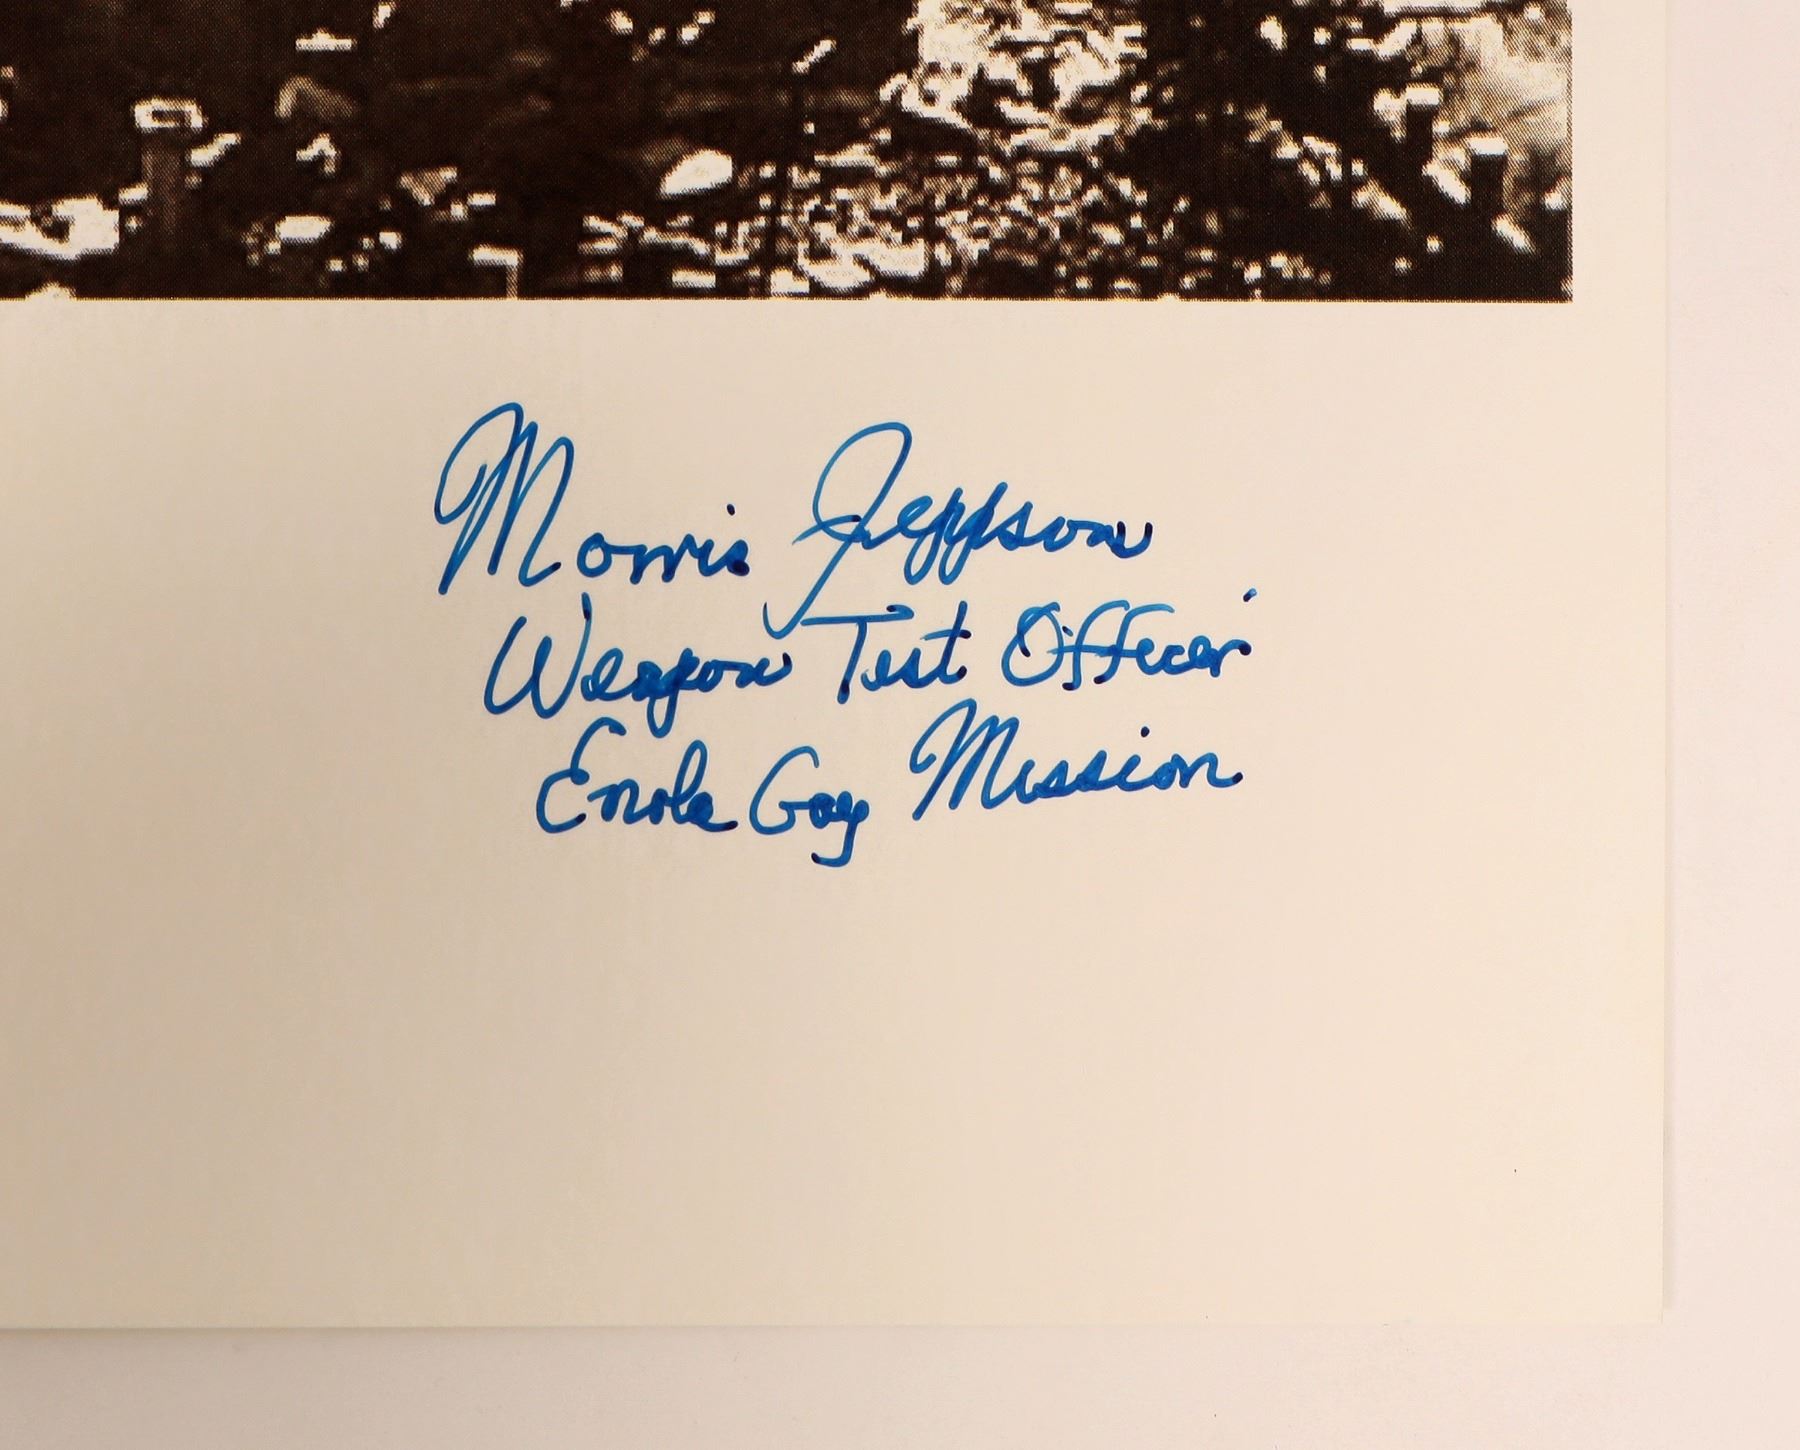 Morris Jeppson
Weapon Test Officer
Enola Gay Mission